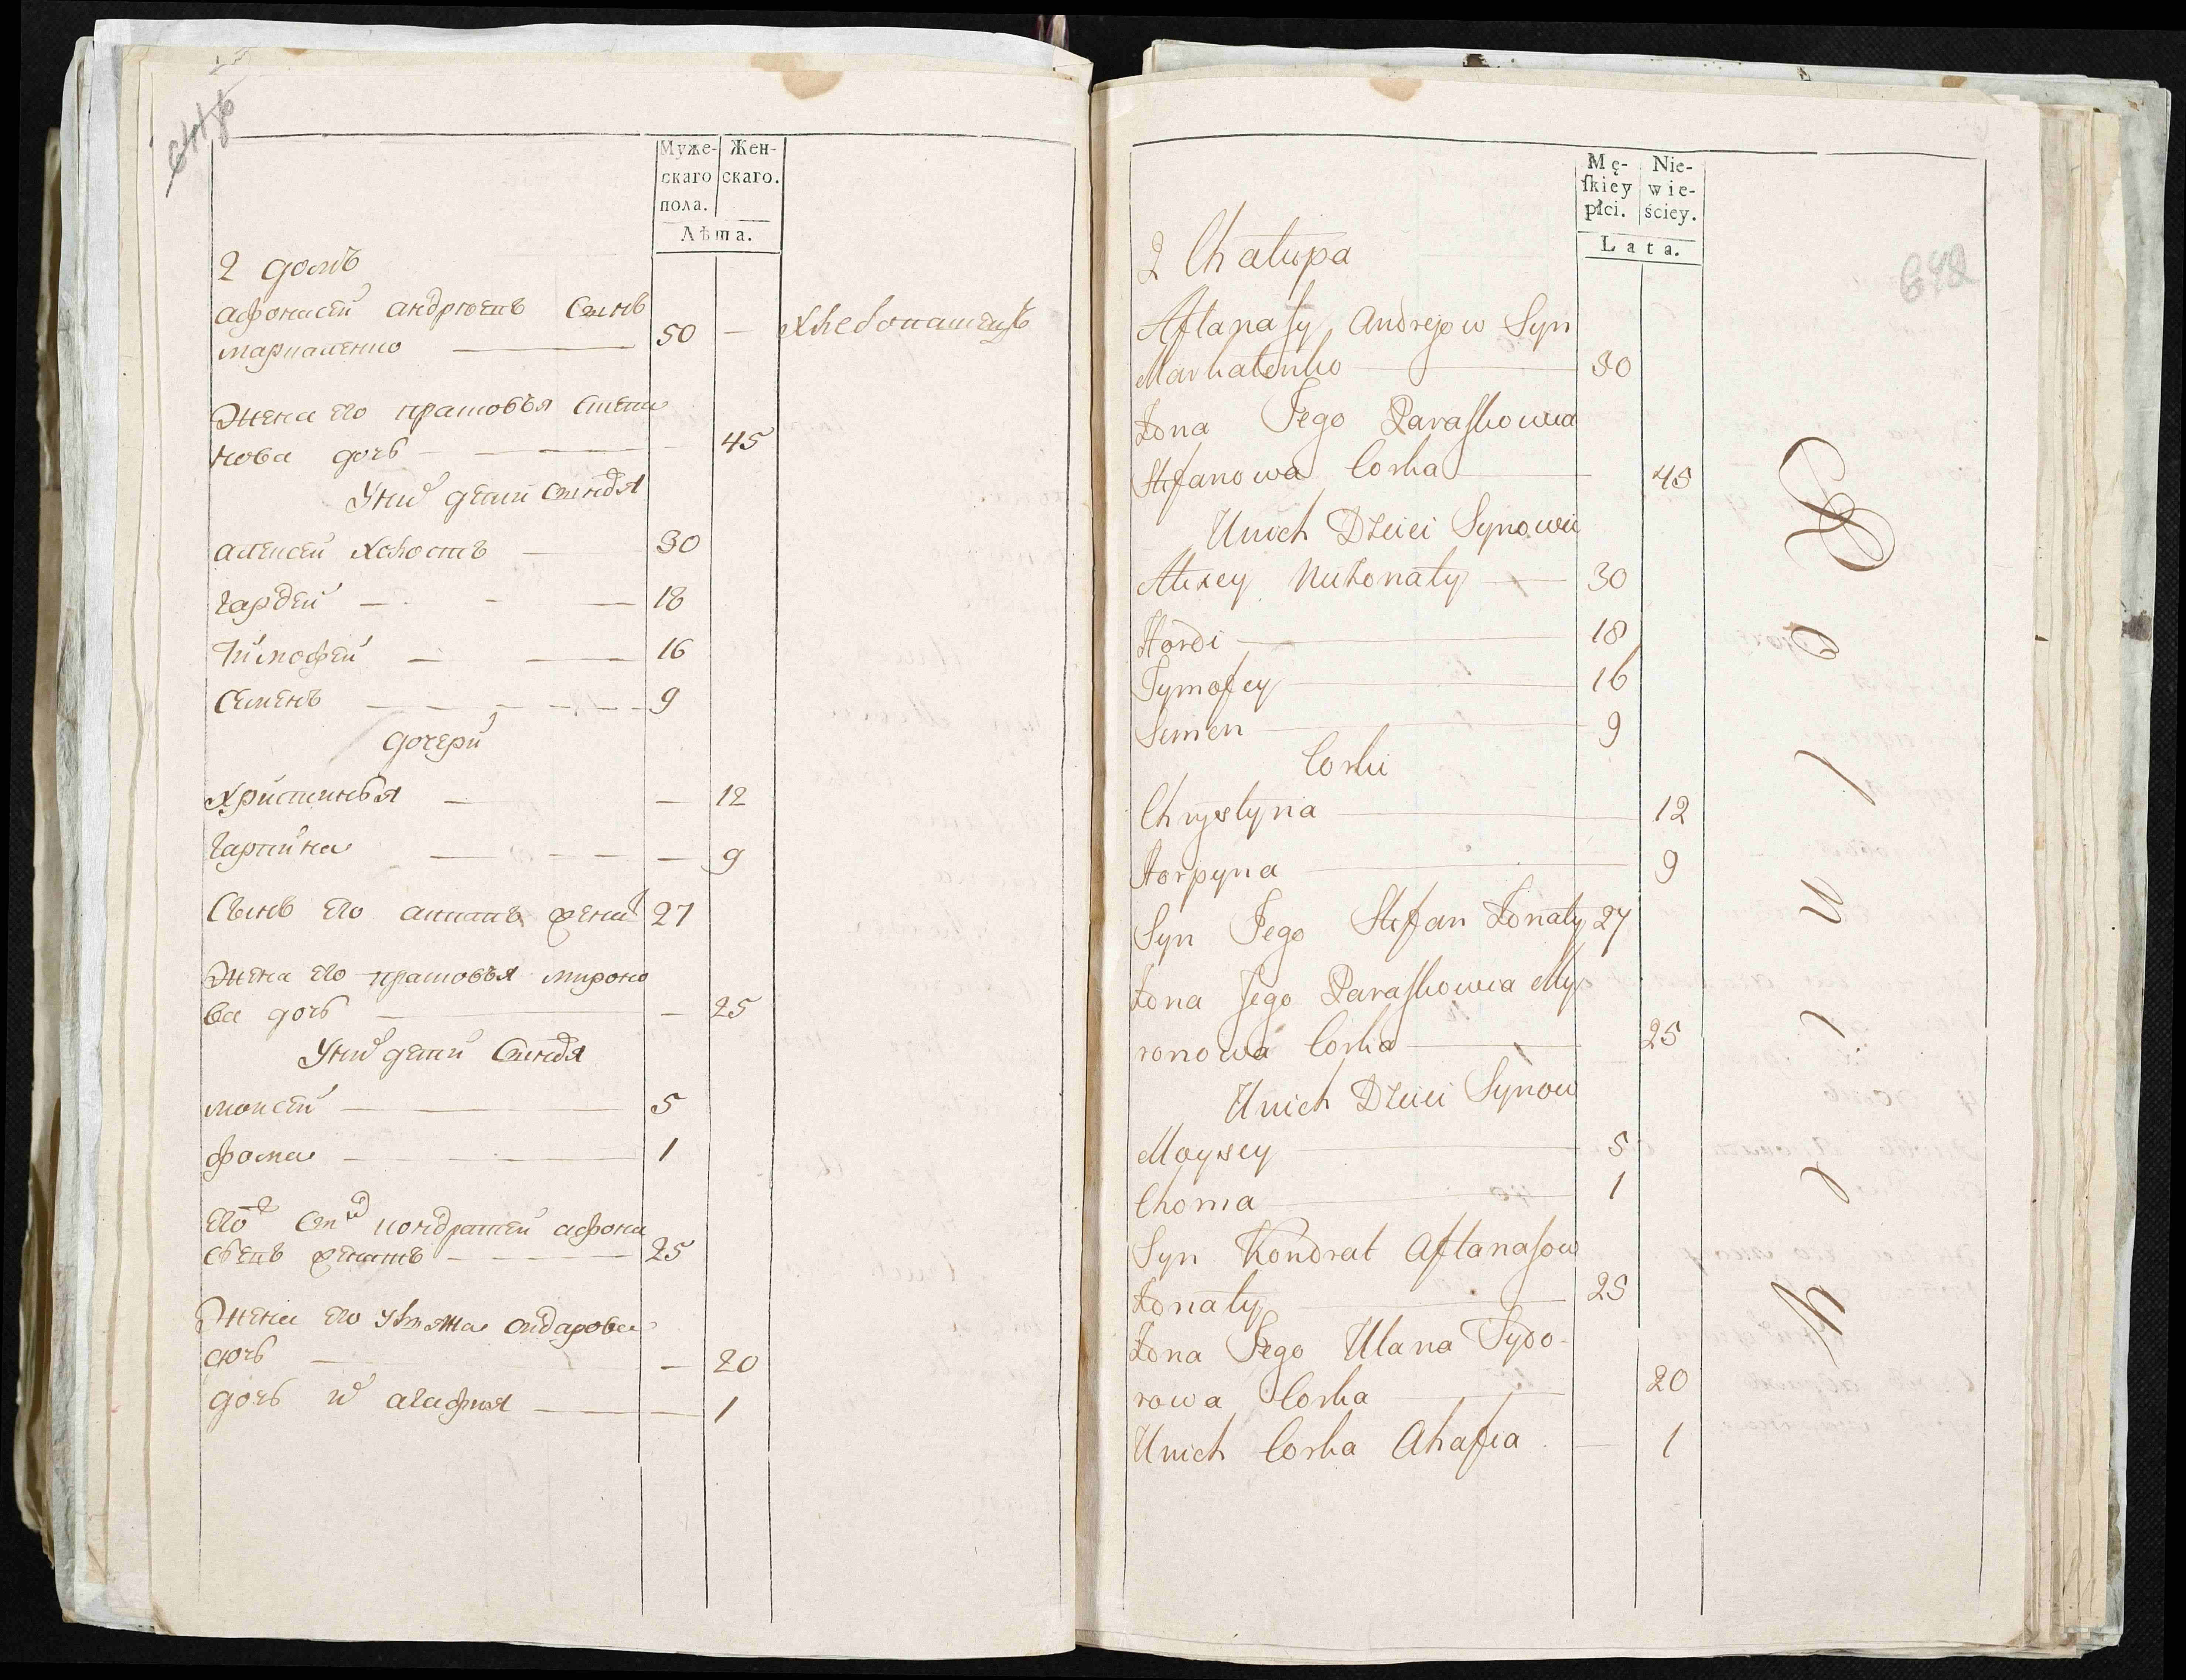 Муже-
скаго
пола.
Жен-
скаго.
Лѣта.
2 домъ
афонасей андрѣевъ Сынъ
маркаленко — 50 — хлебопашецъ
Жена его прасковья степа
нова дочь — 45
У них дети Сыновья
алексей холостъ — 30
гардей — 18
Тимофей — 16
Семенъ — 9
дочери
христинья — 12
гарпина — 9
Сынъ его женат 27
Жена его прасковья мироно
ва дочь — 25
У них дети Сыновья
моисей — 5
фома — 1
его кондратей афона
сьевъ женатъ — 25
Жена его сидарова
дочь — 20
дочь их агафия — 1
Mę-
skiey
płci.
Nie-
wie-
ściey.
Lata.
642
2 Chałupa
Aftanasy Andrejow Syn
Markatenko — 50
Żona Jego Paraskowia
Stefanowa Corka — 45
Unich Dzieci Synowie
Alexey Nieżonaty — 30
Hordi — 18
Tymofey — 16
Semen — 9
Corki
Chrystyna — 12
Horpyna — 9
Syn Jego Stefan Żonaty 27
Żona Jego Paraskowia My
ronowa Corka — 25
Unich Dzieci Synow
Moysey — 5
Choma — 1
Syn Kondrat Aftanasow
Żonaty — 25
Żona Jego Ulana Sydo-
rowa Corka — 20
Unich Corka Ahafia — 1
Rolnik